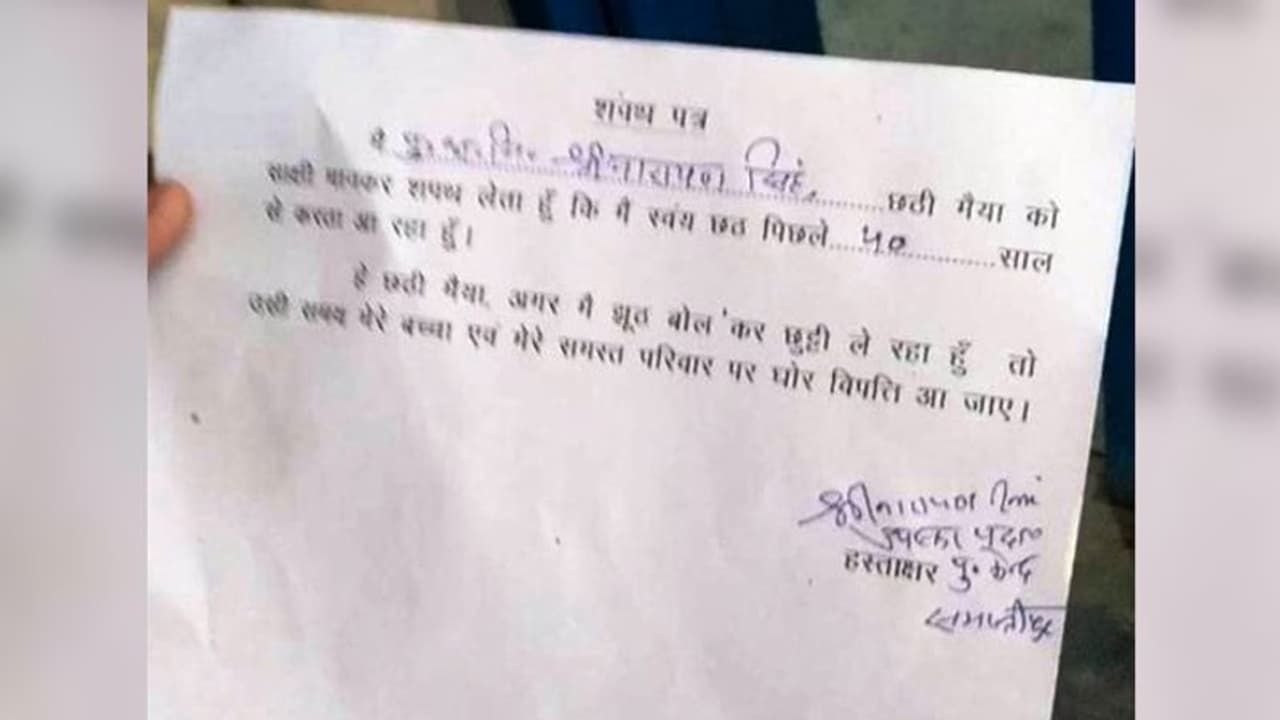 शपथ पत्र
मै पु.अ.नि. श्रीनारायण सिंह, ..........छठी मैया को
साक्षी मानकर शपथ लेता हूँ कि मै स्वंय छठ पिछले....५०..............साल
से करता आ रहा हूँ।
हे छठी मैया, अगर मै झूठ बोल'कर छुट्टी ले रहा हुँ तो
उसी समय मेरे बच्चा एवं मेरे समस्त परिवार पर घोर विपत्ति आ जाए।
श्रीनारायण सिंह
हस्ताक्षर पु॰ केन्द्र